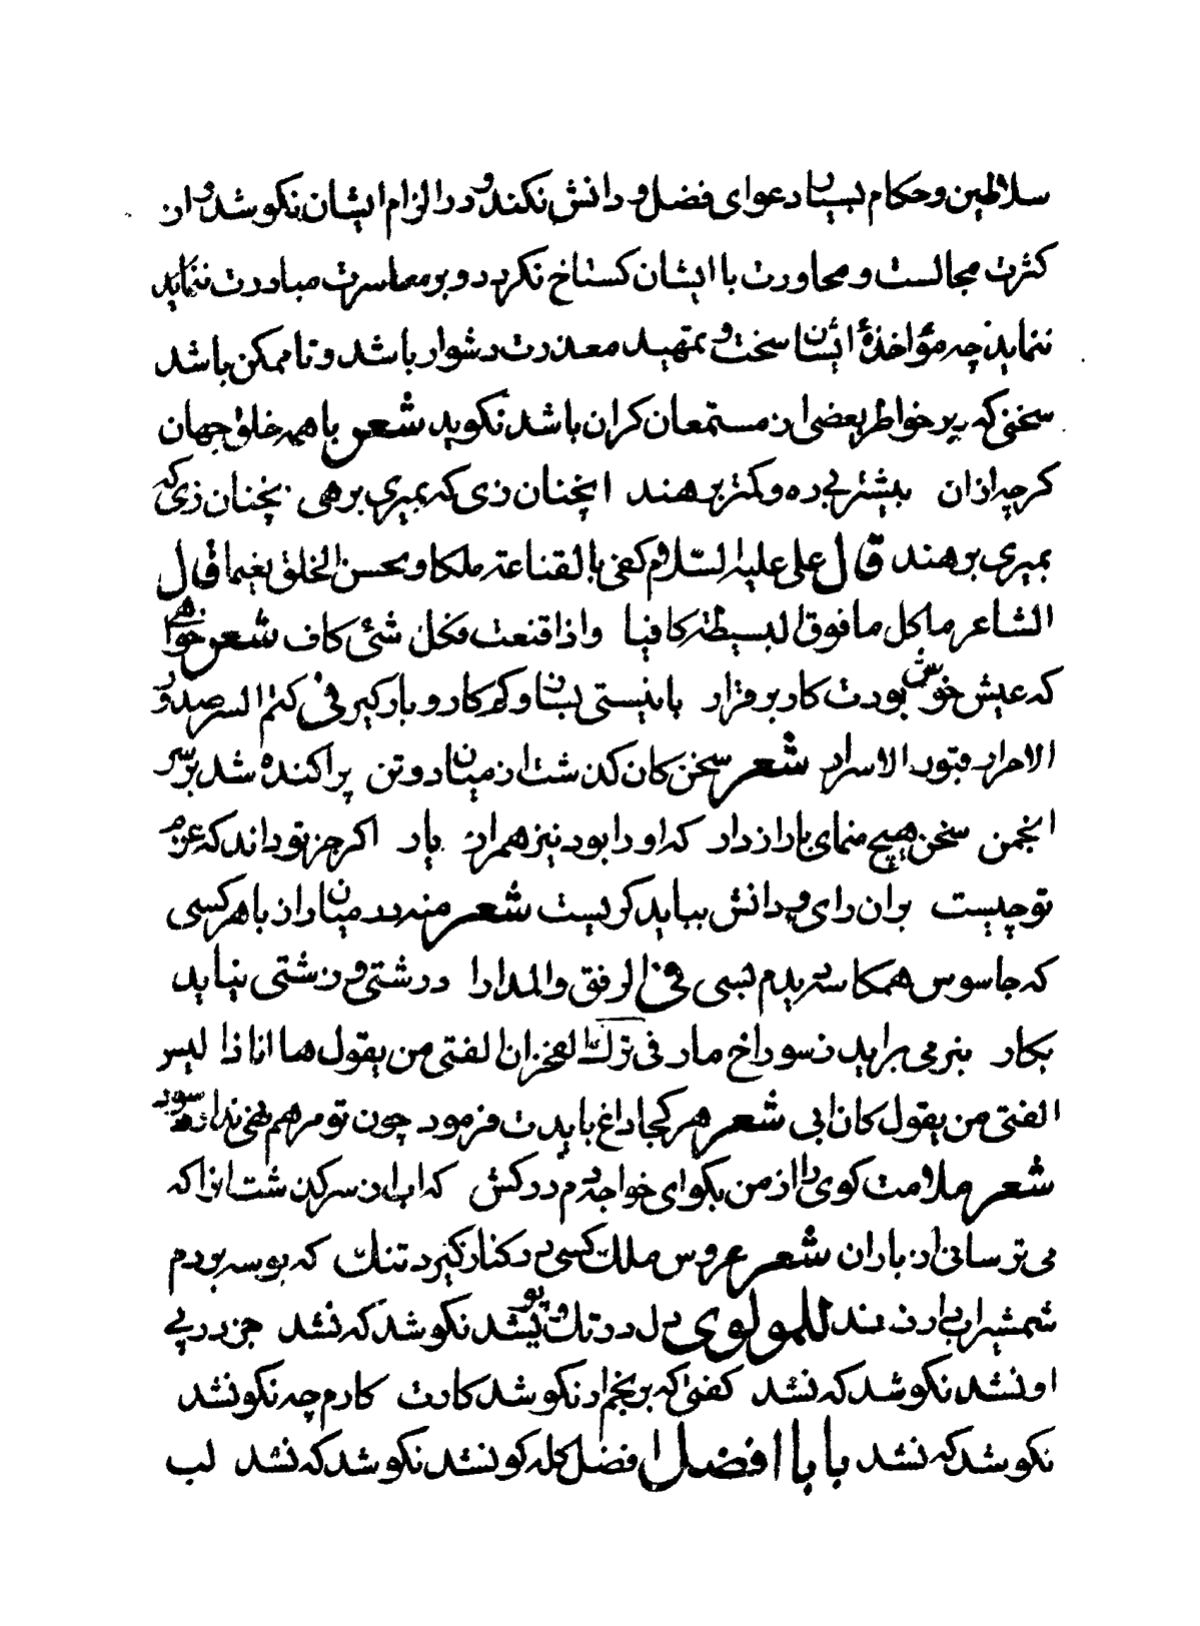 سلاطین و حکام بسیار دعوای فضل و دانش نکند و در الزام ایشان نکوشد و از
کثرت مجالست و محاورت با ایشان کستاخ نکردد و بر معاسرت مبادرت ننماید
ننماید چه مؤاخذهٔ ایشان سخت و تمهید معذرت دشوار باشد و تا ممکن باشد
سخنی که بر خواطر بعضی از مستمعان کران باشد نکوید شعر با همه خلق جهان
کرچه ازان بیشتر بی ره و کمتر برهند انچنان زی که بمیری برهی نچنان زی که
بمیری برهند قال علی علیه السلام کفی بالقناعة ملکا و بحسن الخلق نعیما قال
الشاعر ما کل ما فوق البسیطة کافیا واذا قنعت فکل شئ کاف شعر خواهی
که عیش خوش بودت کار برقرار با نیستی بساز و کم کار و بار کیر فی کتم السر صدور
الاحرار قبور الاسرار شعر سخن کان کذشت از میان دو تن پراکنده شد بر سر
انجمن سخن هیچ منمای با رازدار که او را بود نیز همراز یار اکر جز تو داند که عزم
تو چیست بران رای و دانش بباید کریست شعر منه در میان راز با هر کسی
که جاسوس همکاسه دیدم بسی فی الرفق والمدارا درشتی و زشتی نیاید
بکار بنرمی براید ز سوراخ مار فی ترک الفخر ان الفتی من یقول ها انا ذا لیس
الفتی من یقول کان ابی شعر هر کجا داغ بایدت فرمود چون تو مرهم نهی ندارد سود
شعر ملامت کوی را از من بکو ای خواجه دم درکش که اب از سر کذشت انرا که
می ترسانی از باران شعر عروس ملک کسی در کنار کیرد تنک که بوسه بر دم
شمشیر ابدار زند للمولوی دل در تک و پوی نشد نکو شد که نشد جز در پی
او نشد نکو شد که نشد کفتی که برنجم ار نکو شد کارت کارم چه نکو نشد
نکو شد که نشد بابا افضل افضل کله کو نشد نکو شد که نشد لب